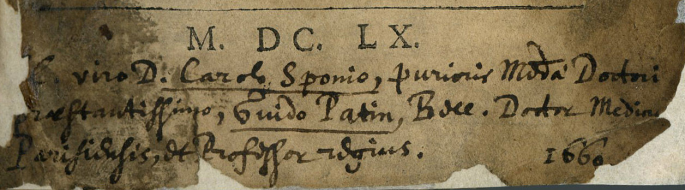 M. DC. LX.
viro D. Carolo Sponio, purioris Medæ Doctori
præstantissimo, Guido Patin, Bell. Doctor Medicus
Parisiensis, et Professor regius. 1660